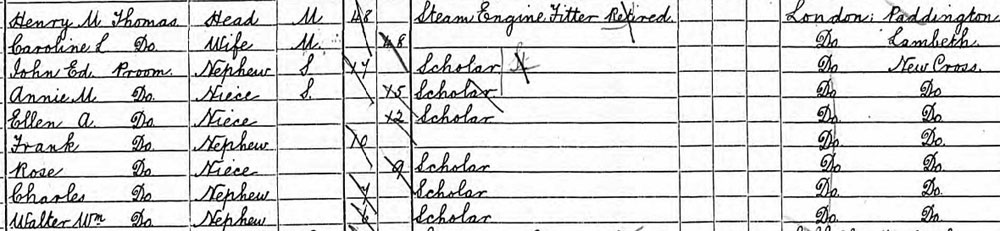 Henry M Thomas Head M 48 Steam Engine Fitter Retired London; Paddington
Caroline L Do. Wife M. 48 Do Lambeth
John Ed. Proom. Nephew S. 17 Scholar Do New Cross.
Annie M Do. Niece S. 15 Scholar Do. Do.
Ellen A. Do. Niece 12 Scholar Do. Do.
Frank Do. Nephew 10 Do. Do.
Rose Do. Niece 9 Scholar Do. Do.
Charles Do. Nephew 7 Scholar Do. Do.
Walter Wm Do. Nephew 6 Scholar Do. Do.